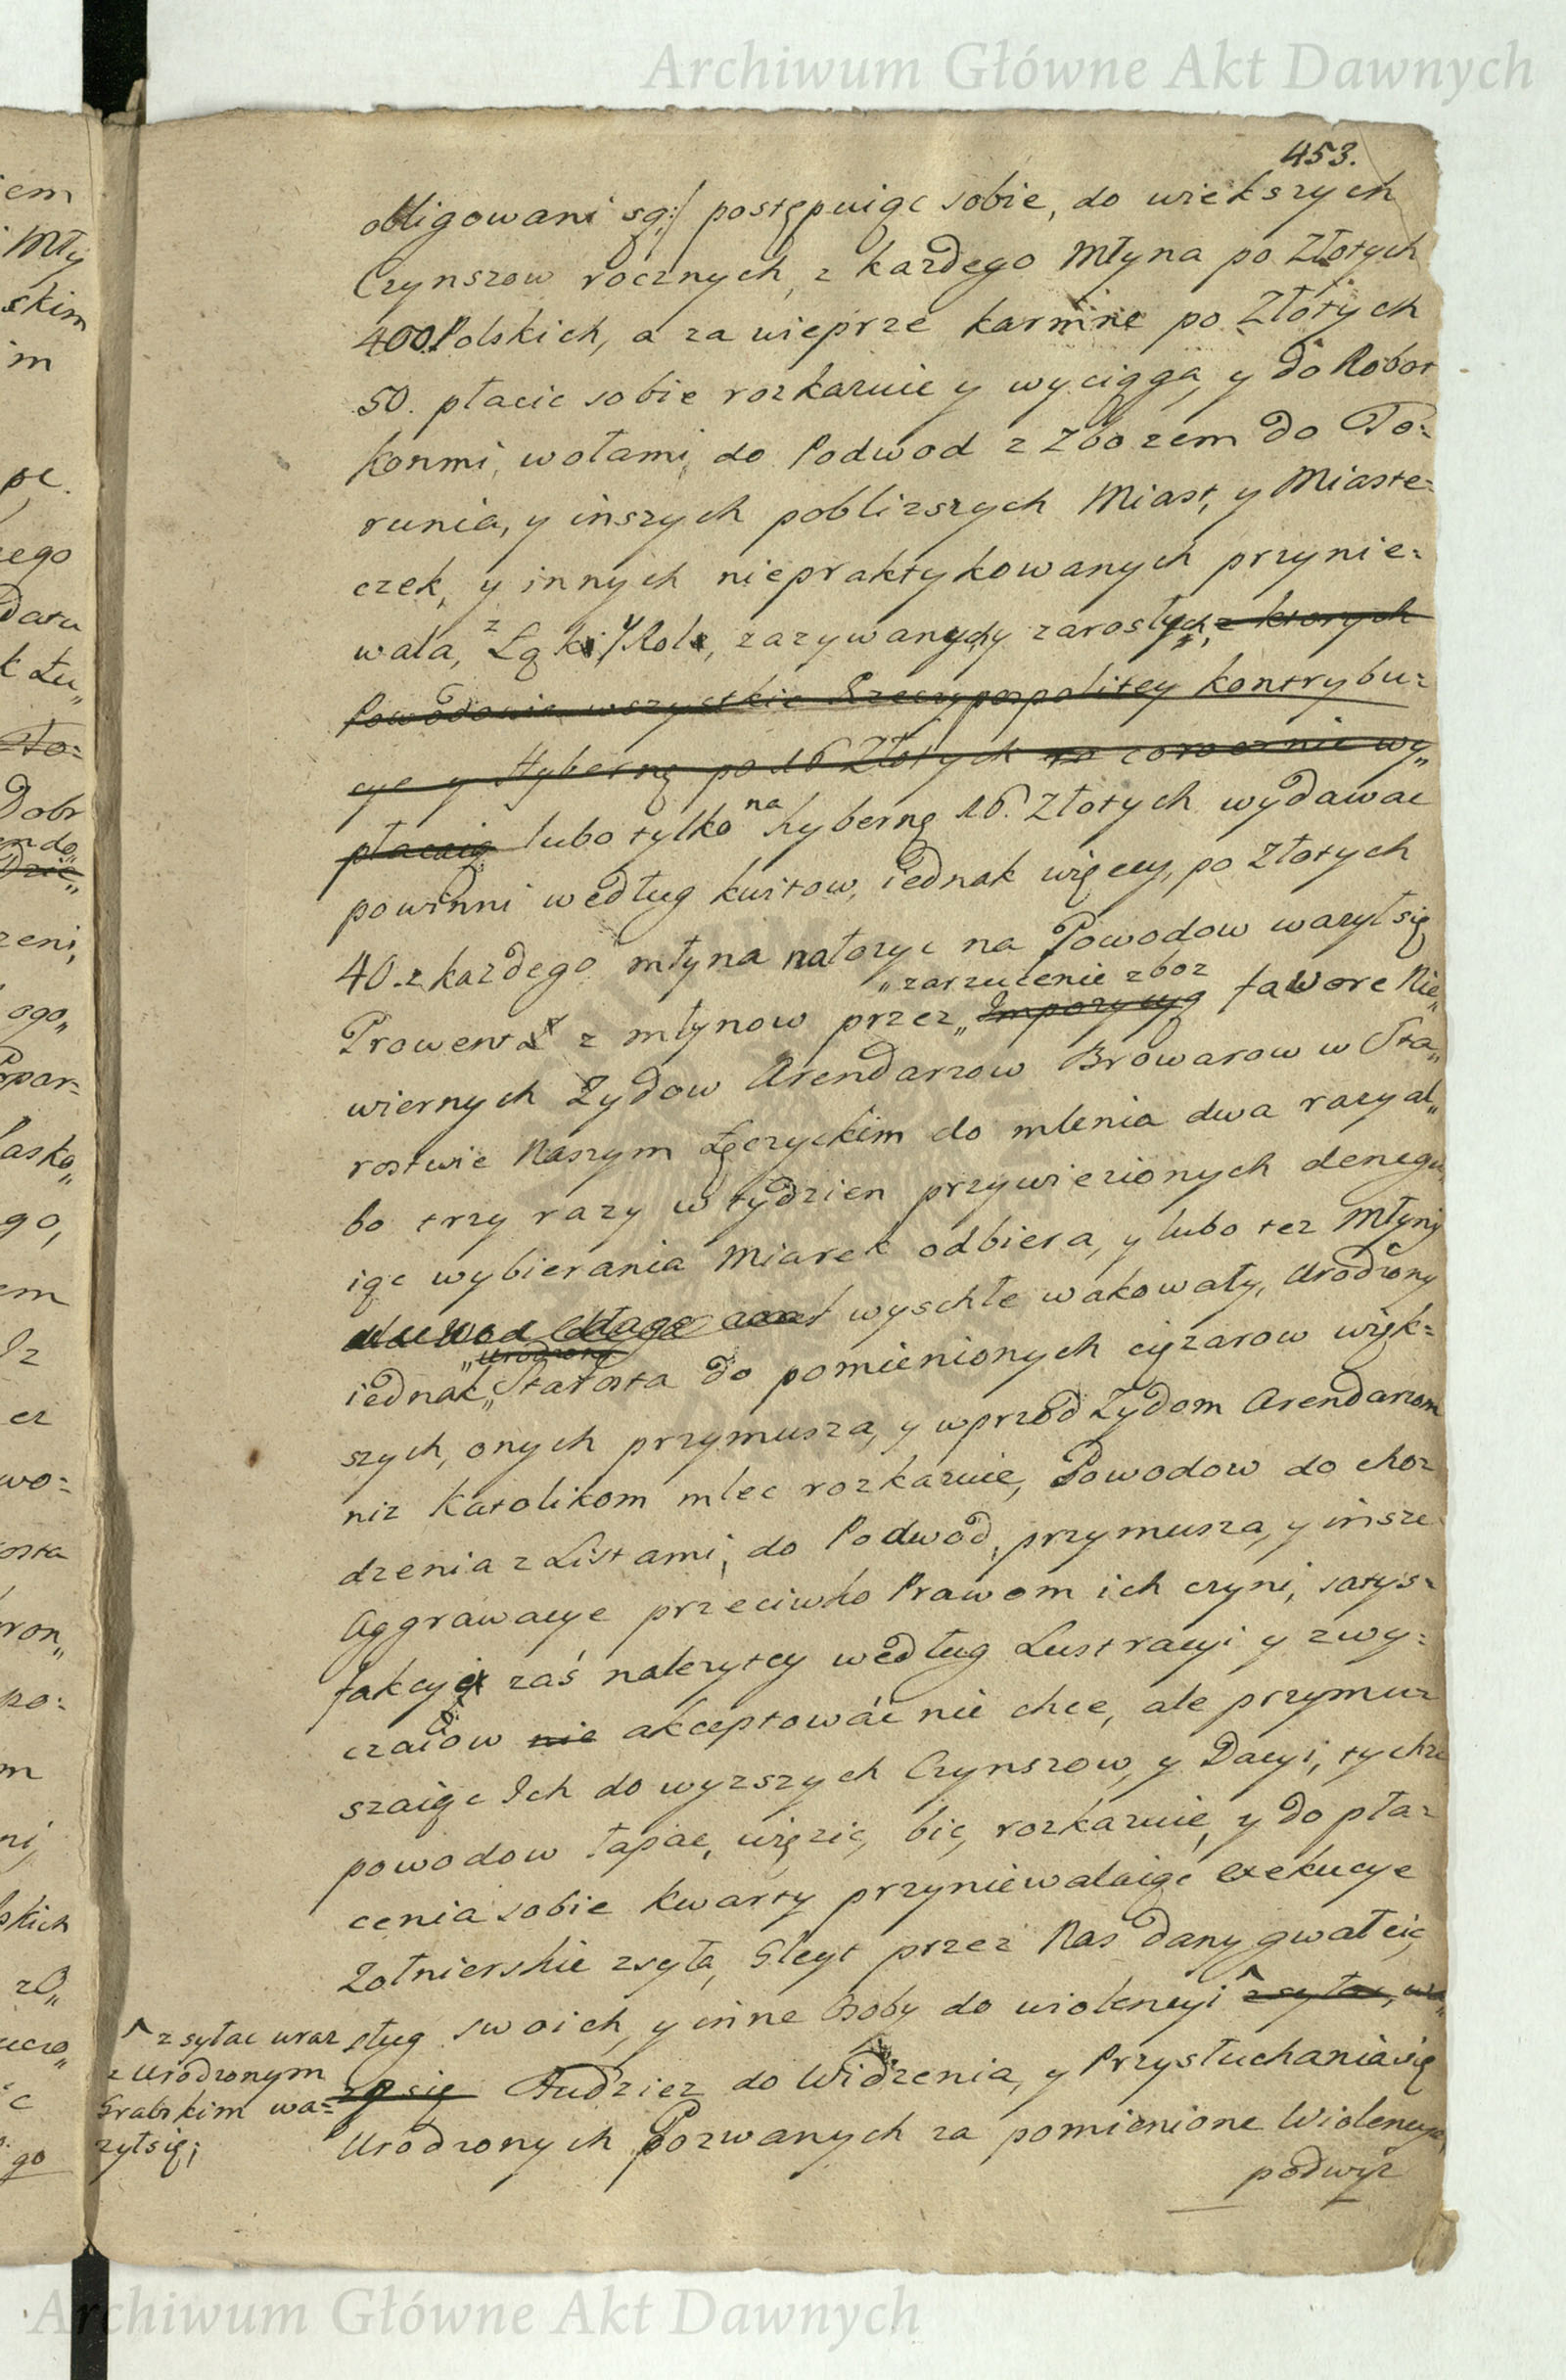 Archiwum Główne Akt Dawnych
453.
obligowani są:/ postępuiąc sobie, do wiekszych
Czynszow rocznych, z kazdego Młyna po Złotych
400. Polskich, a za wieprze karmne po Złotych
50. płacic sobie rozkazuie y wyciąga, y do Robot
konmi, wołami, do Podwod z Zbozem do To=
runia, y inszych poblizszych Miast, y Miaste=
czek, y innych niepraktykowanych przynie=
wala, z Łąk y Rol, zazywanych y zarosłych, z ktorych
Powodowie wszystkie Rzeczypospolitey kontrybu=
cye y Hybernę po 16 Złotych co rocznie wy„
płacaią lubo tylko na hybernę 16. Złotych wydawac
powinni według kwitow, iednak więcey, po Złotych
40. z kazdego młyna nałozyc na Powodow wazył się
„zarzucenie zboz
Prowent z młynow przez „Impozycyą fawore Nie„
wiernych Zydow Arendarzow Browarow w Sta„
rostwie Naszym Łęczyckim do mlenia dwa razy al„
bo trzy razy w tydzien przywiezionych denegu„
iąc wybierania Miarek odbiera, y lubo tez Młyny
wyschłe wakowały, Urodzony
„Urodzony
iednak „Starosta do pomienionych cięzarow więk=
szych, onych przymusza, y wprzod Zydom Arendarzom
niz Katolikom mlec rozkazuie, Powodow do cho=
dzenia z Listami, do Podwod, przymusza, y insze
Aggrawacye przeciwko Prawom ich czyni, satys=
fakcyi zaś nalezytey według Lustracyi y zwy=
czaiow nie akceptowáć nie chce, ale przymu=
szaiąc Ich do wyzszych Czynszow, y Dacyi, tychze
powodow łapac, więzic, bic, rozkazuie, y do pła=
cenia sobie kwarty przyniewalaiąc exekucye
Zołnierskie zsyła, Gleyt przez Nas dany gwałcić,
sług swoich, y inne Osoby do wiolencyi zsyłac, wa„
zył się Tudziez do Widzenia, y Przysłuchania się
Urodzonych Pozwanych za pomienione Wiolencye,
podwyz
^ zsyłac wraz
z Urodzonym
Grabskim wa=
zył się;
Archiwum Główne Akt Dawnych